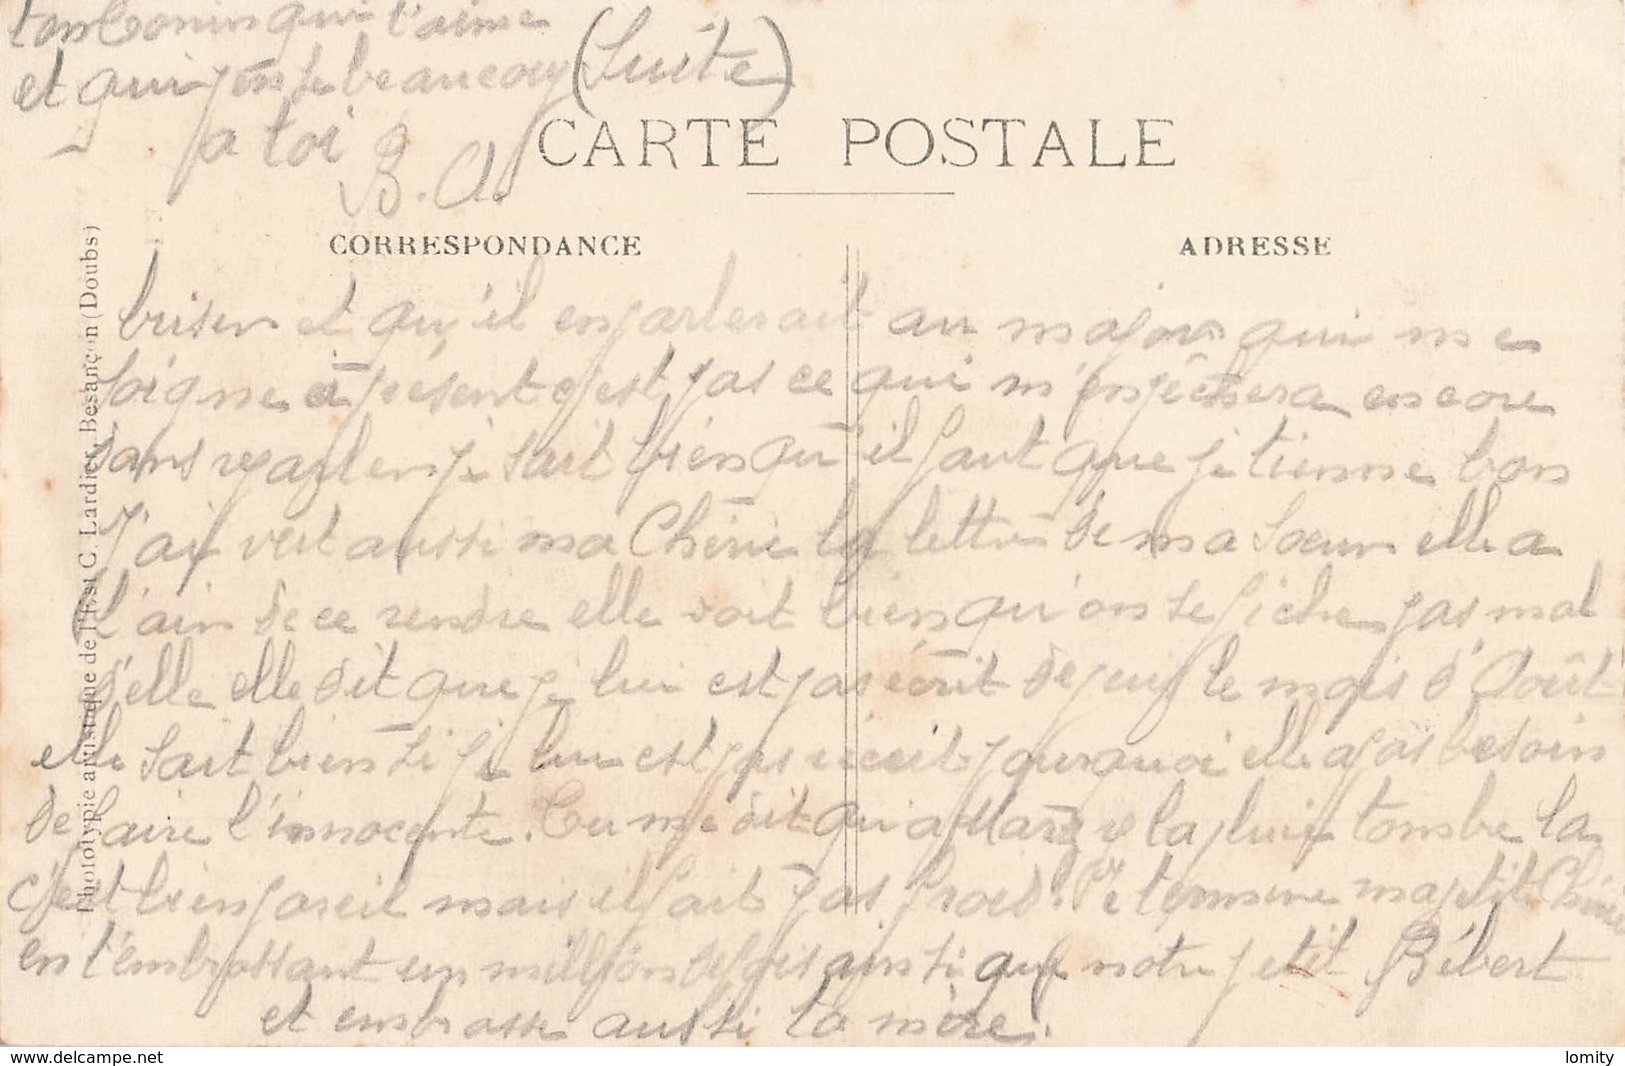 ton Tonin qui t'aime
et qui pense beaucoup (Suite)
a toi
B. A.
CARTE POSTALE
CORRESPONDANCE
ADRESSE
briser et qu'il en parlerait au major qui me
soigne à présent c'est pas ce qui m'empêchera encore
dans reparler je sait bien qu'il faut que je tienne bon
J'ai vut aussi ma Chérie la lettre de ma Soeur elle a
l'air de ce rendre elle voit bien qu'on se fiche pas mal
d'elle elle dit que je lui est pas écrit depuis le mois d'Août
elle sait bien si je lui est pas écrit pourquoi elle a pas besoin
de faire l'innocente. Tu me dit qu'a la pluie tombe la
c'est bien pareil mais il fait pas froid. Je termine ma petite Chérie
en t'embrassant un million de fois ainsi que notre petit Bébert
et embrasse aussi ta mère.
Phototypie artistique de l'Est C. Lardier, Besançon (Doubs)
www.delcampe.net
lomity